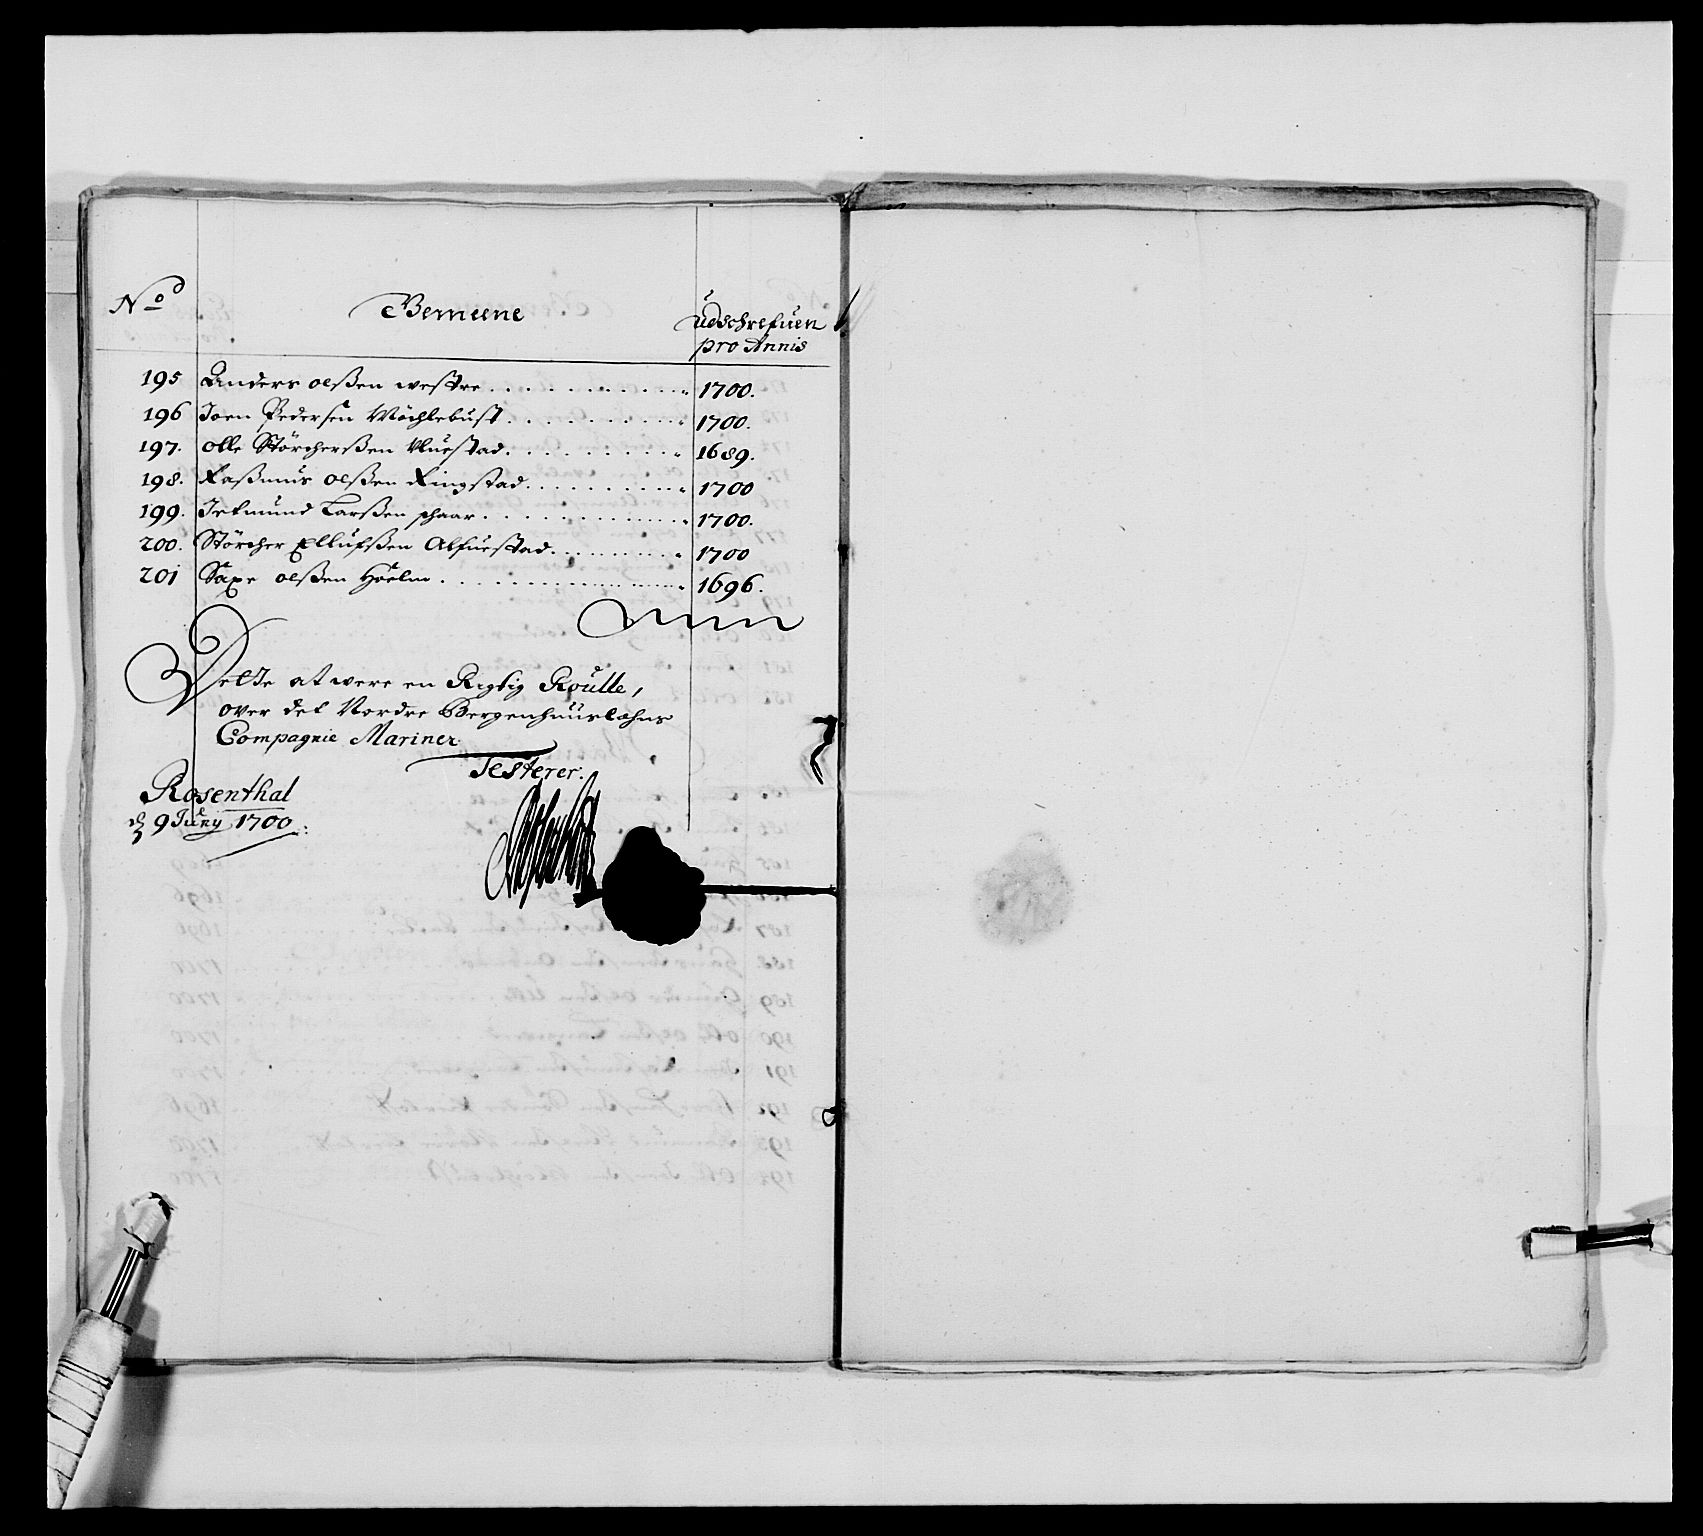 No Gemeene Udschrefuen
pro Annis
195 Anders olßen westre 1700.
196 Joen Pedersen Möchlebust 1700.
197. olle Störcherßen Aluestad 1689.
198. Raßmus olßen Ringstad 1700
199. Jetmund Larßen schaar 1700.
200. Störcher Ellufßen Alfuestad 1700
201 Saxe olßen Hoelm 1696.
Dette at were en Rigtig Roulle,
over det Nordre Bergenhuuslæhns
Compagnie Mariner
Testerer.
Rosenthal
d 9 Juny 1700